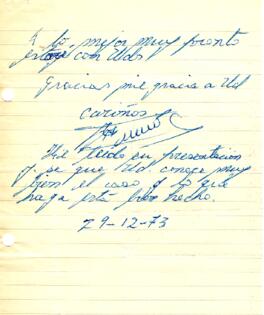 A lo mejor muy pronto
estoy con Uds
Gracias mil gracia a Ud
cariños
en presentacion
y se que Ud. conoce muy
bien el caso y lo que
haga está bien hecho.
29-12-73